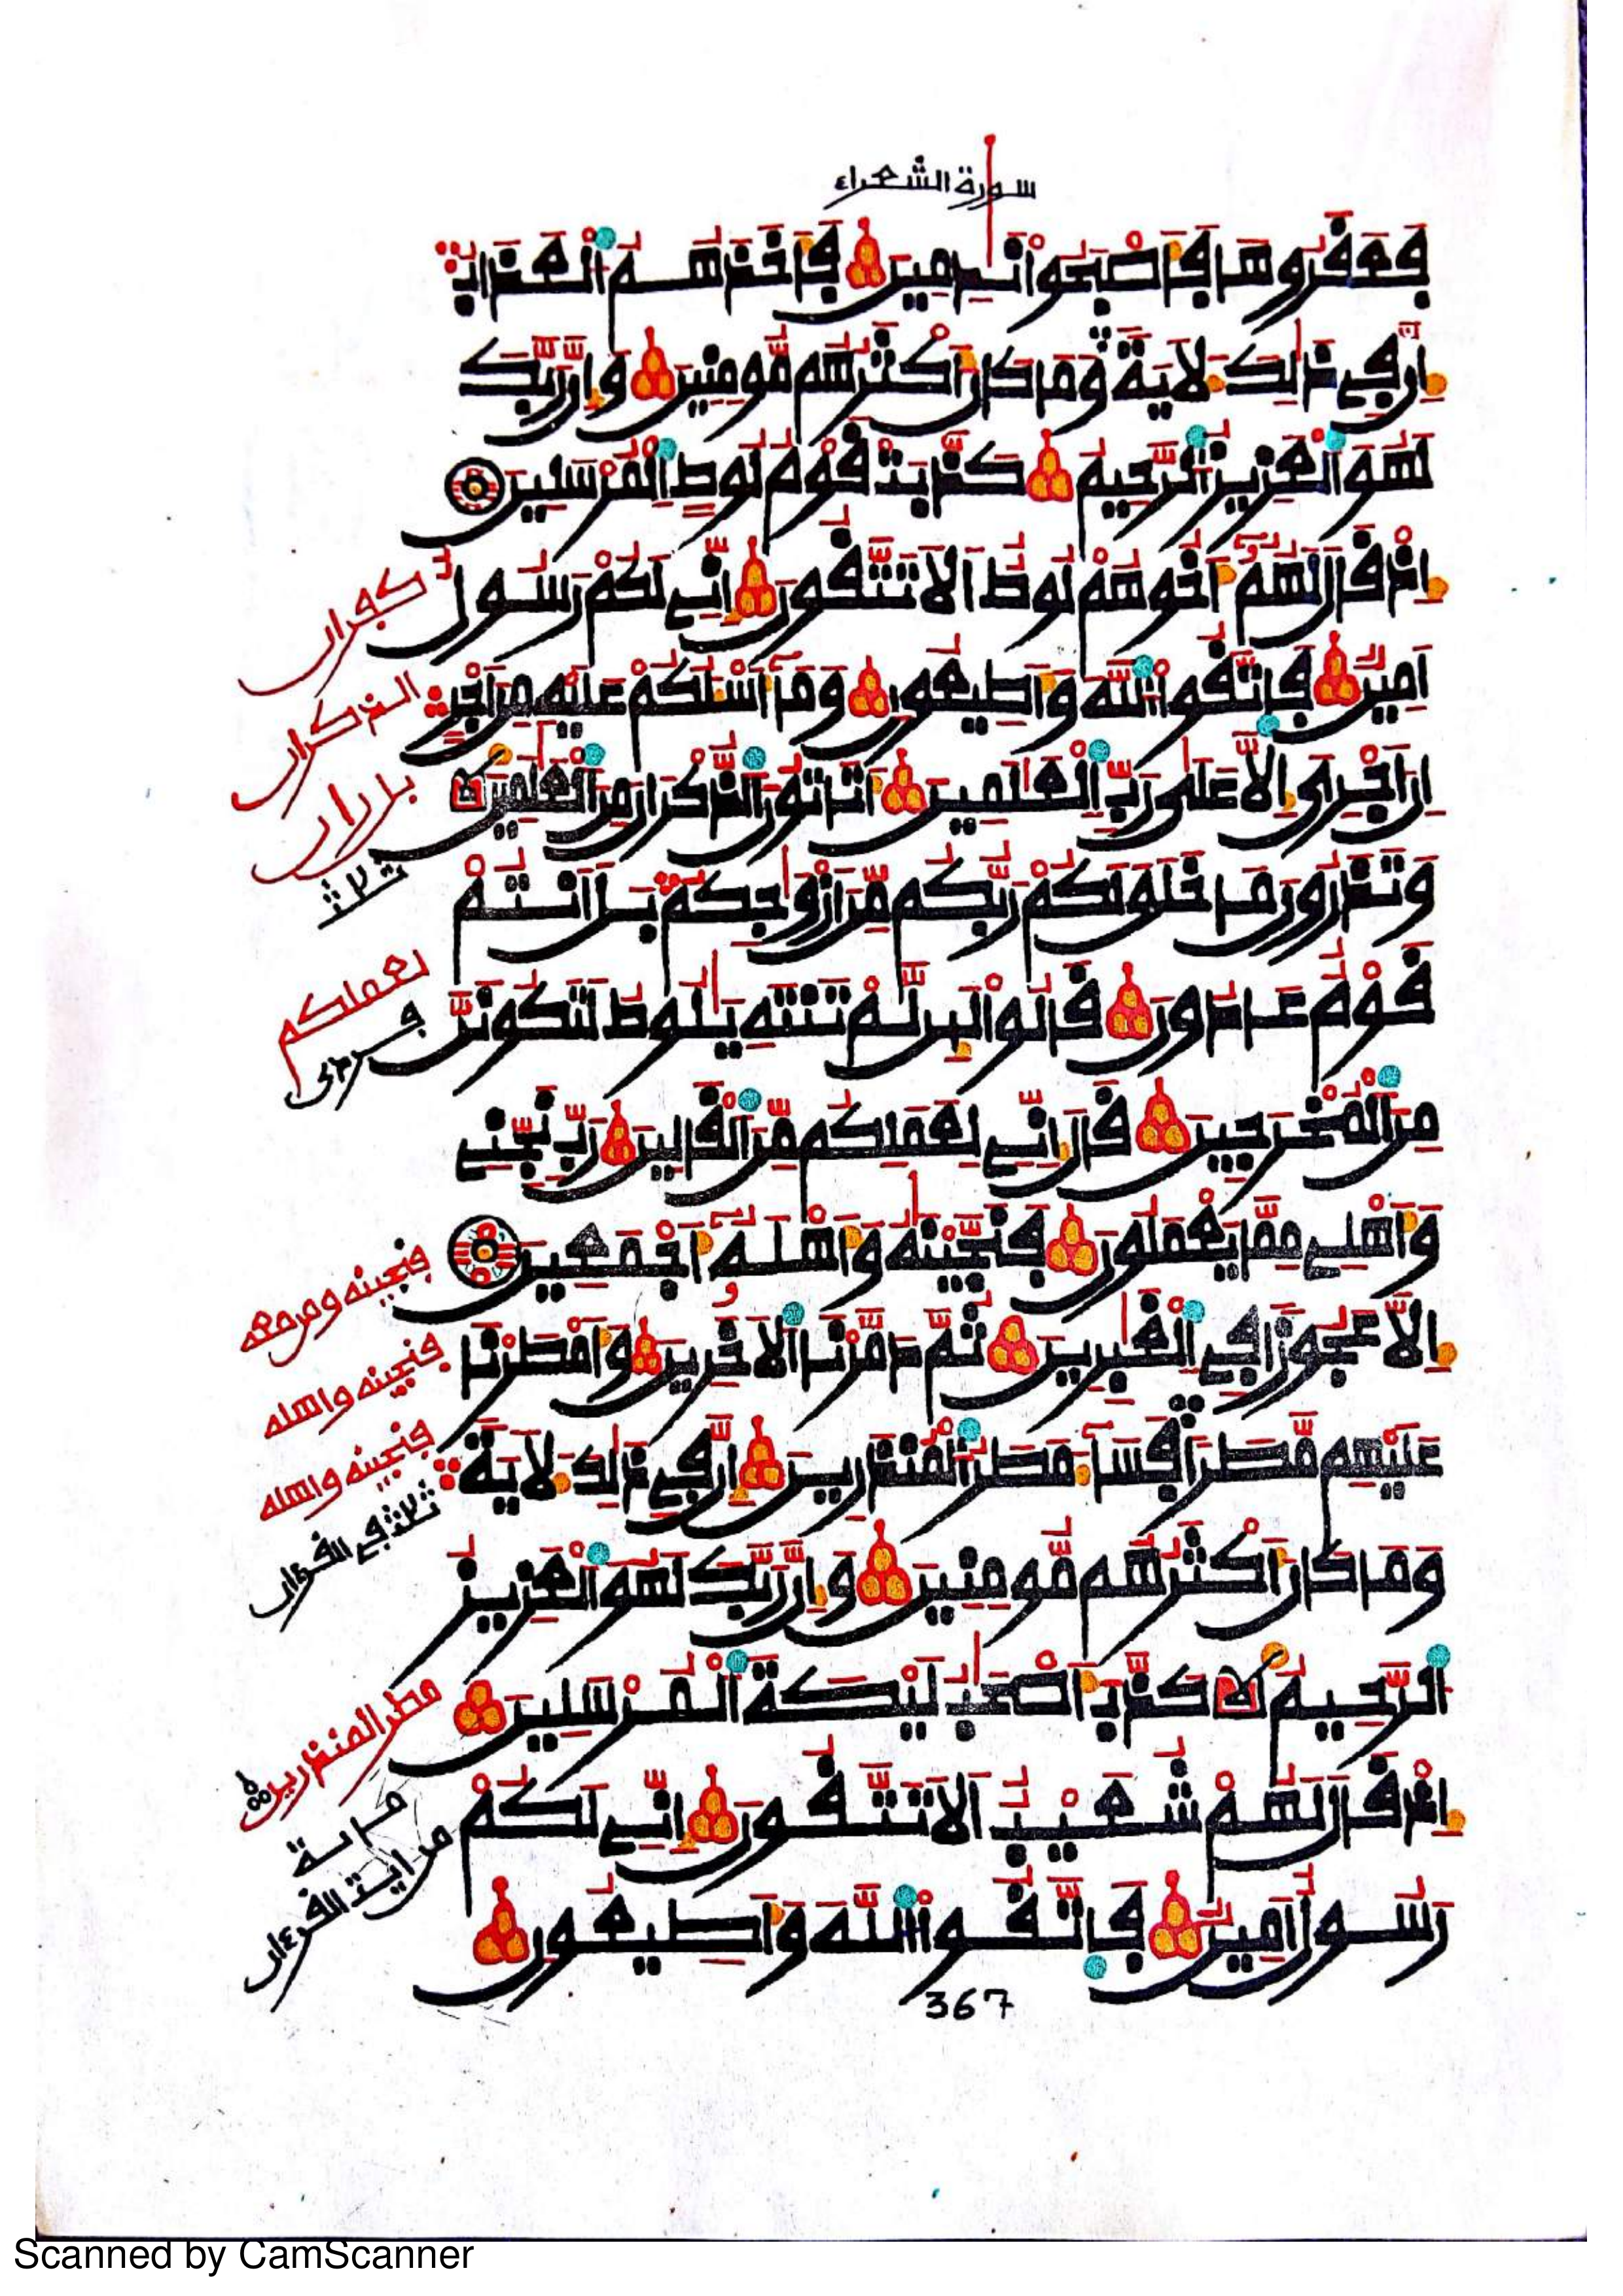 سورة الشعراء
فَعَقَرُوهَا فَأَصْبَحُوا نَٰدِمِينَ فَأَخَذَهُمُ الْعَذَابُ
إِنَّ فِي ذَٰلِكَ لَآيَةً وَمَا كَانَ أَكْثَرُهُم مُّومِنِينَ وَإِنَّ رَبَّكَ
لَهُوَ الْعَزِيزُ الرَّحِيمُ كَذَّبَتْ قَوْمُ لُوطٍ الْمُرْسَلِينَ
إِذْ قَالَ لَهُمُ أَخُوهُمْ لُوطٌ أَلَا تَتَّقُونَ إِنِّي لَكُمْ رَسُولٌ
أَمِينٌ فَاتَّقُوا اللَّهَ وَأَطِيعُونِ وَمَا أَسْـَٔلُكُمْ عَلَيْهِ مِنَ أَجْرٍ
إِنَ أَجْرِيَ إِلَّا عَلَىٰ رَبِّ الْعَٰلَمِينَ أَتَاتُونَ الذُّكْرَانَ مِنَ الْعَٰلَمِينَ
وَتَذَرُونَ مَا خَلَقَ لَكُمْ رَبُّكُم مِّنَ أَزْوَٰجِكُم بَلَ أَنتُمْ
قَوْمٌ عَادُونَ قَالُوا لَئِن لَّمْ تَنتَهِ يَٰلُوطُ لَتَكُونَنَّ
مِنَ الْمُخْرَجِينَ قَالَ إِنِّي لِعَمَلِكُم مِّنَ الْقَالِينَ رَبِّ نَجِّنِي
وَأَهْلِي مِمَّا يَعْمَلُونَ فَنَجَّيْنَٰهُ وَأَهْلَهُ أَجْمَعِينَ
إِلَّا عَجُوزًا فِي الْغَٰبِرِينَ ثُمَّ دَمَّرْنَا الْآخَرِينَ وَأَمْطَرْنَا
عَلَيْهِم مَّطَرًا فَسَاءَ مَطَرُ الْمُنذَرِينَ إِنَّ فِي ذَٰلِكَ لَآيَةً
وَمَا كَانَ أَكْثَرُهُم مُّومِنِينَ وَإِنَّ رَبَّكَ لَهُوَ الْعَزِيزُ
الرَّحِيمُ كَذَّبَ أَصْحَٰبُ لَيْكَةَ الْمُرْسَلِينَ
إِذْ قَالَ لَهُمْ شُعَيْبٌ أَلَا تَتَّقُونَ إِنِّي لَكُمْ
رَسُولٌ أَمِينٌ فَاتَّقُوا اللَّهَ وَأَطِيعُونِ
367
كفران
الذكران
بل ران
ثلاث
لعملكم
فردى
فنجينه ومن معه
فنجينه واهله
فنجينه واهله
ثلاث في القرءان
مطر المنذرين
Scanned by CamScanner